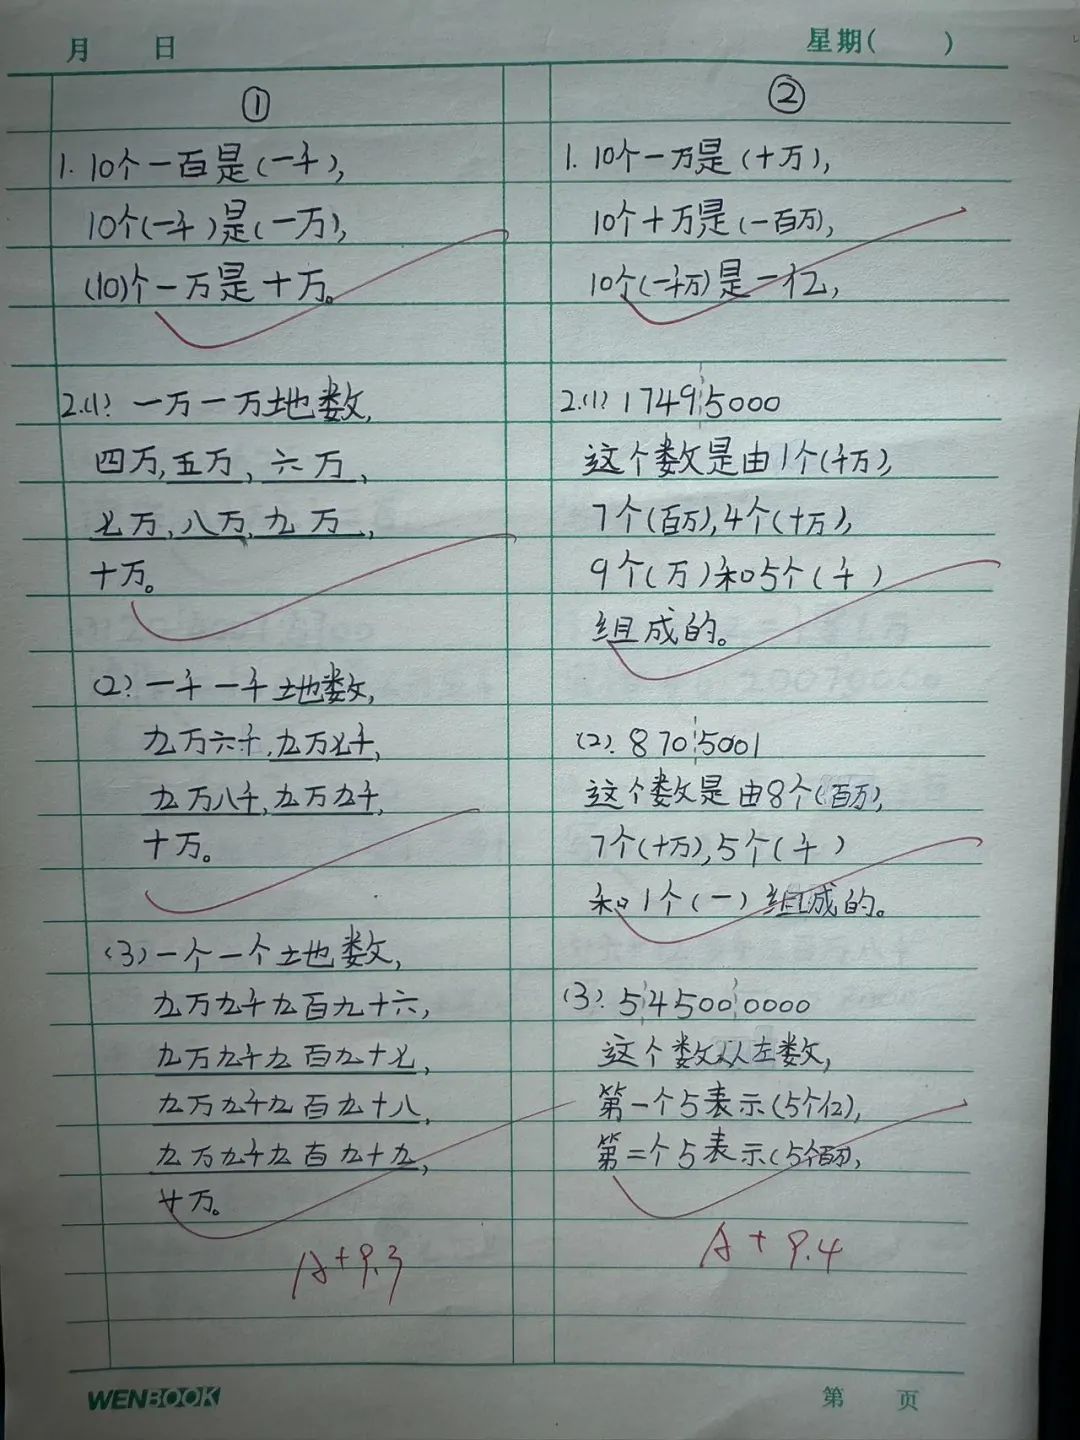 月 日 星期( )
①
1. 10个一百是(一千),
10个(一千)是(一万),
(10)个一万是十万。
2.(1)? 一万一万地数,
四万,五万,六万,
七万,八万,九万,
十万。
(2)? 一千一千地数,
九万六千,九万七千,
九万八千,九万九千,
十万。
(3)一个一个地数,
九万九千九百九十六,
九万九千九百九十七,
九万九千九百九十八,
九万九千九百九十九,
十万。
A+ 9.3
②
1. 10个一万是(十万),
10个十万是(一百万),
10个(一千万)是一亿,
2.(1)? 1749 5000
这个数是由1个(千万),
7个(百万),4个(十万),
9个(万)和5个(千)
组成的。
(2). 870 5001
这个数是由8个(百万),
7个(十万),5个(千)
和1个(一)组成的。
(3)? 5 4500 0000
这个数从左数,
第一个5表示(5个亿),
第二个5表示(5个百万),
A+ 9.4
WENBOOK
第 页